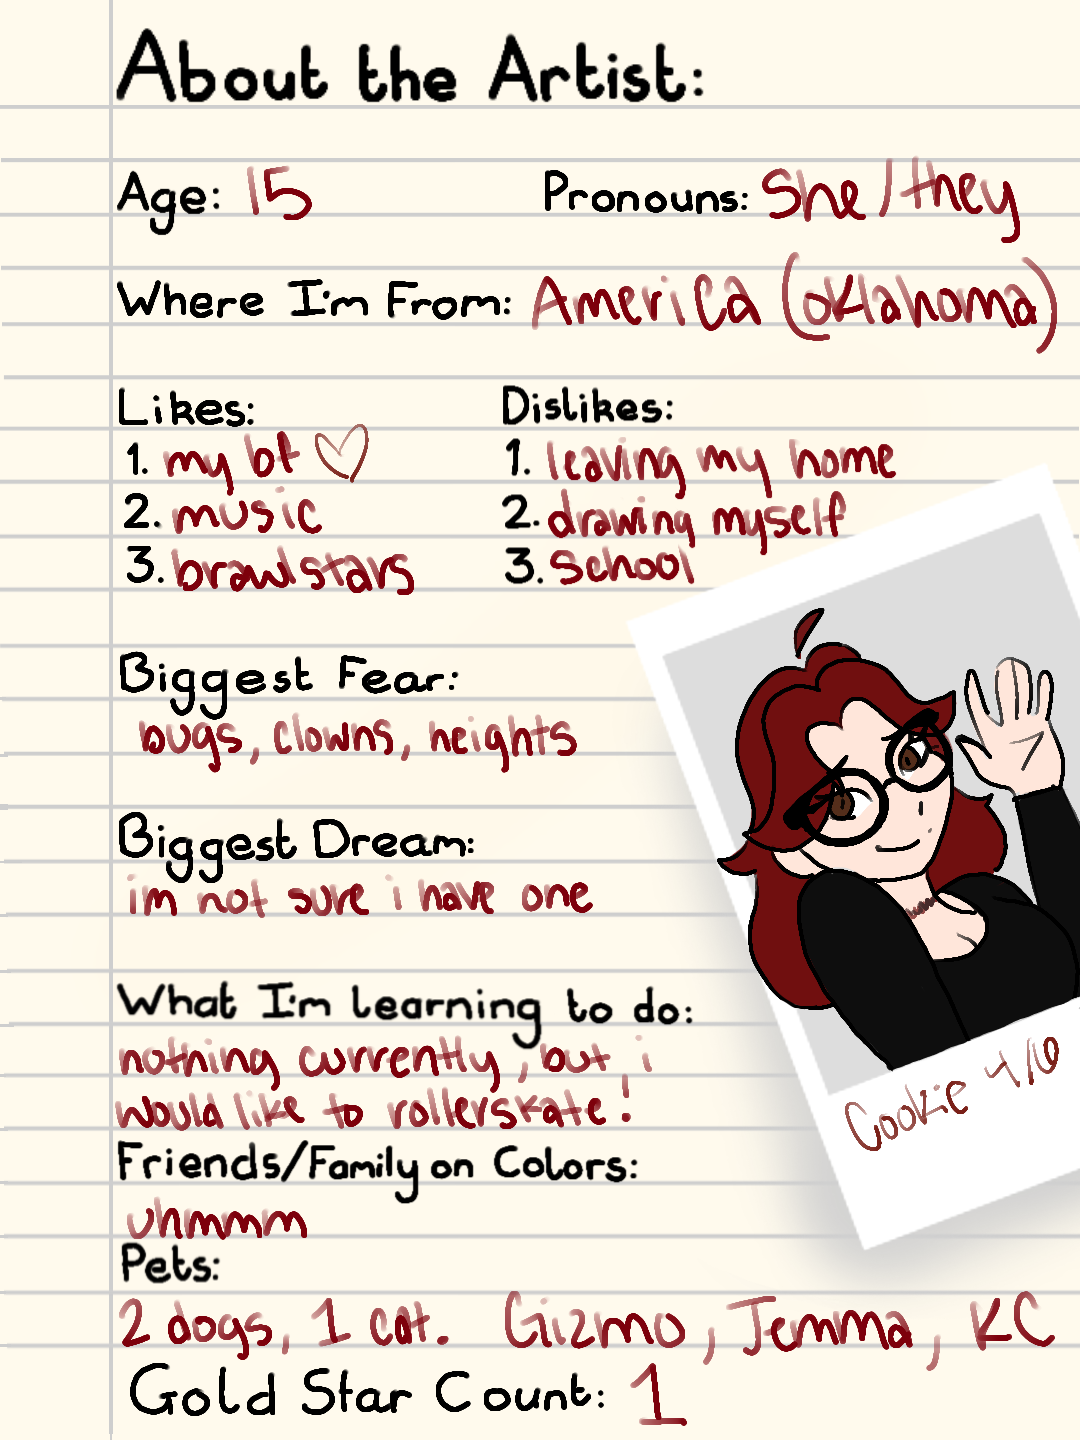 About the Artist:
Age: 15 Pronouns: She/they
Where I'm From: America (oklahoma)
Likes: Dislikes:
1. my bf ♡ 1. leaving my home
2. music 2. drawing myself
3. brawlstars 3. School
Biggest Fear:
bugs, clowns, heights
Biggest Dream:
im not sure i have one
What I'm learning to do:
nothing currently, but i
would like to rollerskate!
Cookie 4/10
Friends/Family on Colors:
uhmmm
Pets:
2 dogs, 1 cat. Gizmo, Jemma, KC
Gold Star Count: 1